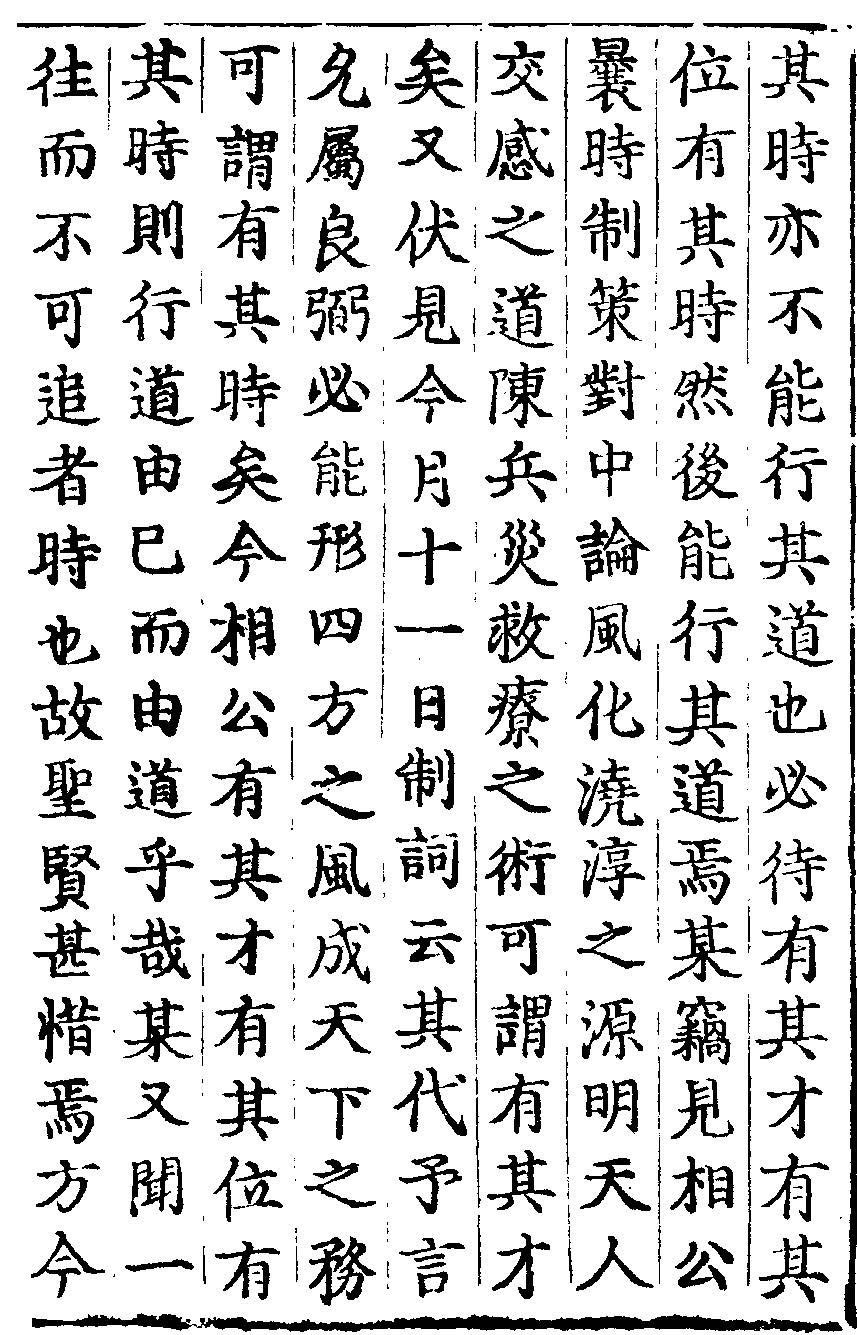 其時亦不能行其道也必待有其才有其
位有其時然後能行其道焉某竊見相公
曩時制策對中論風化澆淳之源明天人
交感之道陳兵災救療之術可謂有其才
矣又伏見今月十一日制詞云其代予言
允屬良弼必能形四方之風成天下之務
可謂有其時矣今相公有其才有其位有
其時則行道由已而由道乎哉某又聞一
往而不可追者時也故聖賢甚惜焉方今